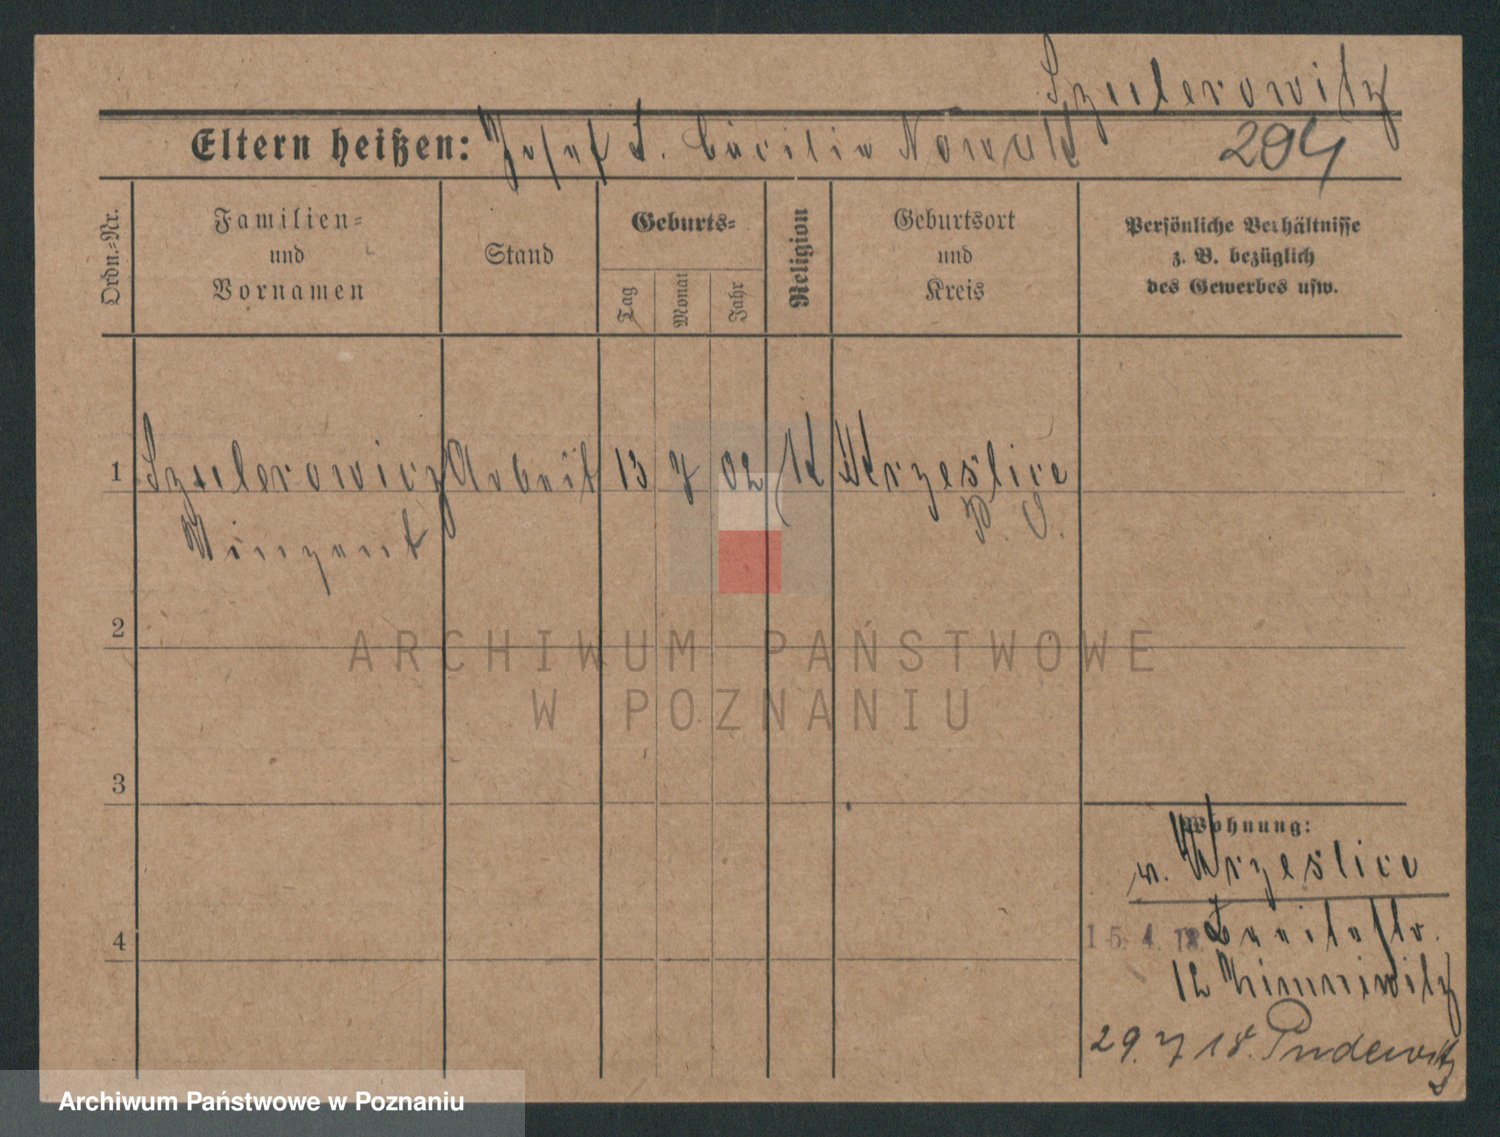 Szulerowitz
Eltern heißen: Josef S. Cäcilia Nowak 294
Ordn.=Nr.
Familien=
und
Vornamen
Stand
Geburts=
Tag
Monat
Jahr
Religion
Geburtsort
und
Kreis
Persönliche Verhältnisse
z. B. bezüglich
des Gewerbes usw.
1 Szulerowicz Arbeit 13 7 02 K Wrzeslice
P. O.
Vinzent
2
ARCHIWUM PAŃSTWOWE
W POZNANIU
3
Wohnung:
n. Wrzeslice
4
15. 4. 18. Breitestr.
12
29. 7 18. Pudewitz
Archiwum Państwowe w Poznaniu